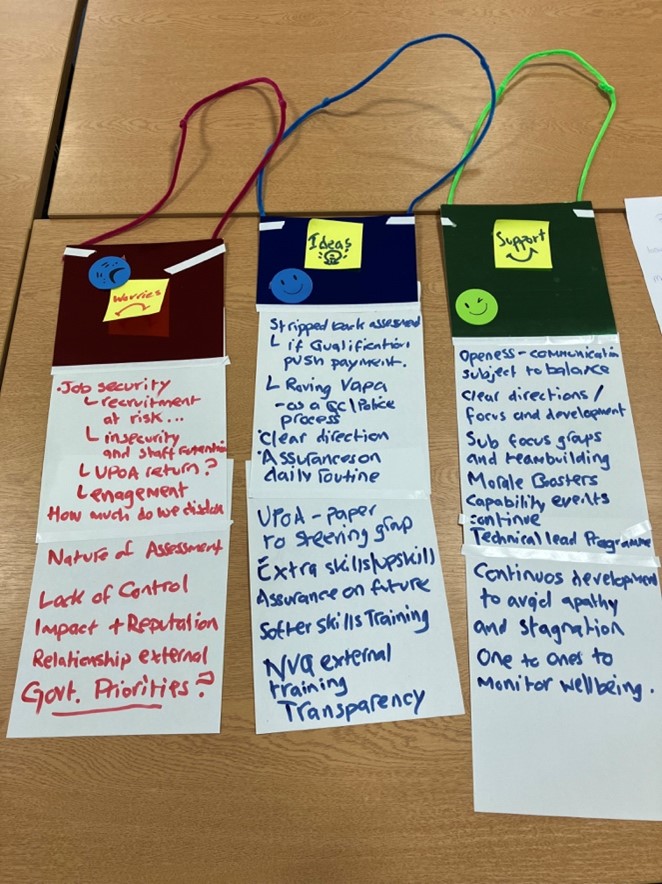 Worries
·Job security
↳recruitment
at risk...
↳insecurity
and staff retention
↳UPOA return?
↳enagement
How much do we disclose
Nature of Assessment
Lack of Control
Impact + Reputation
Relationship external
Govt. Priorities?
Ideas
Stripped back assessment
↳ if Qualification
push payment.
↳ Roving VAPA
- as a QC/Police
process
·Clear direction
·Assurances on
daily routine
UPOA - paper
to steering group
Extra skills/upskill
Assurance on future
Softer skills Training
NVQ external
training
Transparency
Support
Openess - communication
subject to balance
Clear directions /
focus and development
Sub focus groups
and teambuilding
Morale Boosters
Capability events
continue
Technical lead Programme
Continuos development
to avoid apathy
and stagnation
One to ones to
monitor wellbeing.